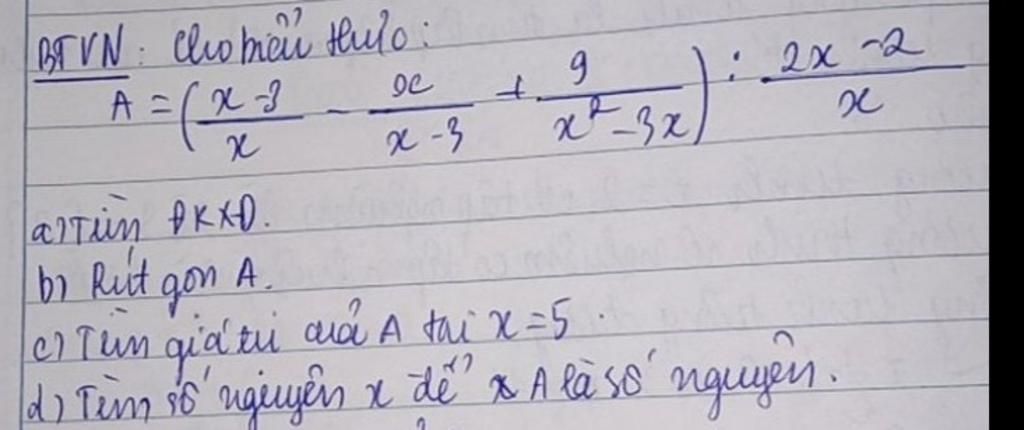 BTVN: Cho biểu thức:
A = (\frac{x-3}{x} - \frac{x}{x-3} + \frac{9}{x^2-3x}) : \frac{2x-2}{x}
a) Tìm ĐKXĐ.
b) Rút gọn A.
c) Tìm giá trị của A tại x = 5.
d) Tìm số nguyên x để A là số nguyên.